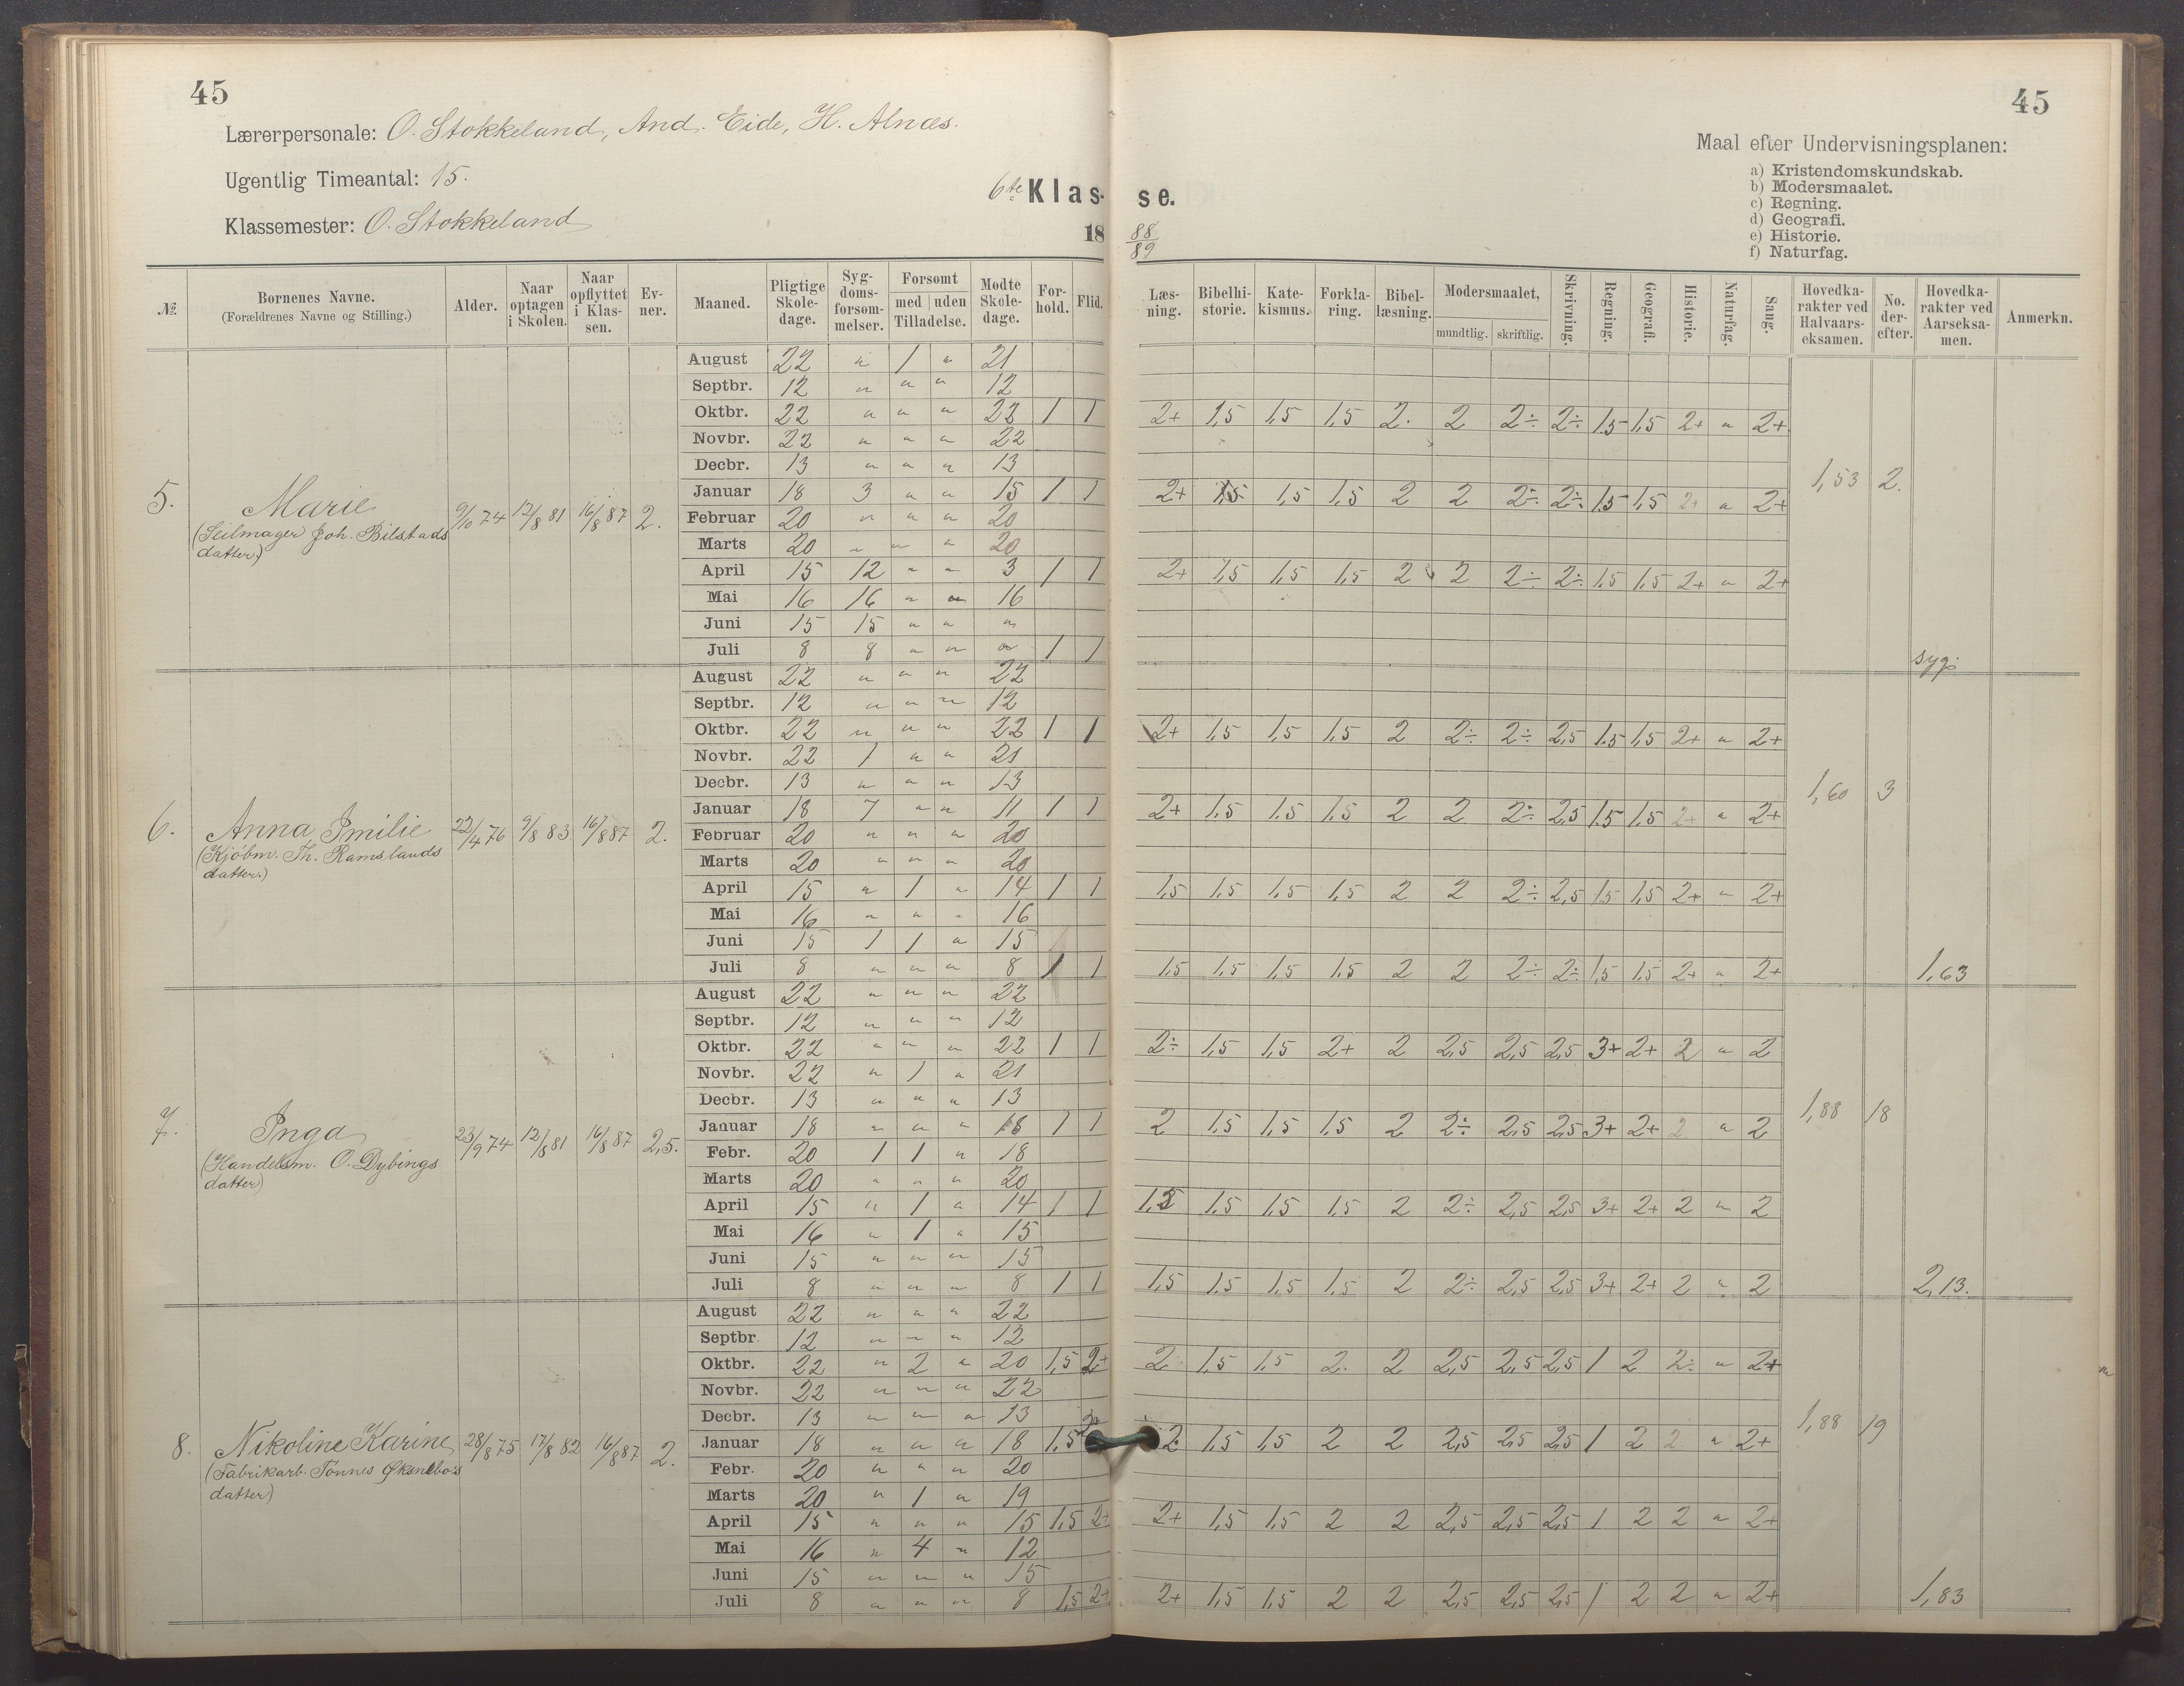 45
45
Lærerpersonale: O. Stokkeland, And. Eide, H. Alnæs.
Ugentlig Timeantal: 15.
Klassemester: O. Stokkeland
6te Klas- se.
18 88/89
Maal efter Undervisningsplanen:
a) Kristendomskundskab.
b) Modersmaalet.
c) Regning.
d) Geografi.
e) Historie.
f) Naturfag.
№ Børnenes Navne. (Forældrenes Navne og Stilling.) Alder. Naar optagen i Skolen. Naar opflyttet i Klassen. Evner. Maaned. Pligtige Skoledage. Sygdomsforsømmelser. Forsømt med uden Tilladelse. Mødte Skoledage. Forhold. Flid. Læsning. Bibelhistorie. Katekismus. Forklaring. Bibellæsning. Modersmaalet, mundtlig. skriftlig. Skrivning. Regning. Geografi. Historie. Naturfag. Sang. Hovedkarakter ved Halvaarseksamen. No. derefter. Hovedkarakter ved Aarseksamen. Anmerkn.
5. Marie
(Seilmager Joh. Bilstads
datter)
9/10 74 12/8 81 16/8 87 2.
August 22 " 1 " 21
Septbr. 12 " " " 12
Oktbr. 22 " " " 22 1 1 2+ 1,5 1,5 1,5 2. 2 2÷ 2÷ 1.5 1,5 2+ " 2+
Novbr. 22 " " " 22
Decbr. 13 " " " 13
Januar 18 3 " " 15 1 1 2+ 1,5 1,5 1,5 2 2 2÷ 2÷ 1.5 1,5 2+ " 2+
1,53 2.
Februar 20 " " " 20
Marts 20 " " " 20
April 15 12 " " 3 1 1 2+ 1,5 1,5 1,5 2 2 2÷ 2÷ 1.5 1,5 2+ " 2+
Mai 16 16 " " 16
Juni 15 15 " " "
Juli 8 8 " " " 1 1 syg.
6. Anna Emilie
(Kjøbm. Th. Ramslands
datter.)
22/4 76 9/8 83 16/8 87 2.
August 22 " " " 22
Septbr. 12 " " " 12
Oktbr. 22 " " " 22 1 1 2+ 1,5 1,5 1,5 2 2÷ 2÷ 2,5 1.5 1,5 2+ " 2+
Novbr. 22 1 " " 21
Decbr. 13 " " " 13
Januar 18 7 " " 11 1 1 2+ 1,5 1,5 1,5 2 2 2÷ 2,5 1.5 1,5 2+ " 2+
1,60 3
Februar 20 " " " 20
Marts 20 " " " 20
April 15 " 1 " 14 1 1 1,5 1,5 1,5 1,5 2 2 2÷ 2,5 1.5 1,5 2+ " 2+
Mai 16 " " " 16
Juni 15 1 1 " 15
Juli 8 " " " 8 1 1 1,5 1,5 1,5 1,5 2 2 2÷ 2÷ 1,5 1,5 2+ " 2+ 1,63
7. Inga
(Handelsm. O. Dybings
datter)
23/9 74 12/8 81 16/8 87 2,5.
August 22 " " " 22
Septbr. 12 " " " 12
Oktbr. 22 " " " 22 1 1 2÷ 1,5 1,5 2+ 2 2,5 2,5 2,5 3+ 2+ 2 " 2
Novbr. 22 " 1 " 21
Decbr. 13 " " " 13
Januar 18 " " " 18 1 1 2 1,5 1,5 1,5 2 2÷ 2,5 2,5 3+ 2+ 2 " 2
1,88 18
Febr. 20 1 1 " 18
Marts 20 " " " 20
April 15 " 1 " 14 1 1 1,5 1,5 1,5 1,5 2 2÷ 2,5 2,5 3+ 2+ 2 " 2
Mai 16 " 1 " 15
Juni 15 " " " 15
Juli 8 " " " 8 1 1 1,5 1,5 1,5 1,5 2 2÷ 2,5 2,5 3+ 2+ 2 " 2 2,13.
8. Nikoline Karine
(Fabrikarb. Tønnes Øksnebø's
datter)
28/8 75 17/8 82 16/8 87 2.
August 22 " " " 22
Septbr 12 " " " 12
Oktbr. 22 " 2 " 20 1,5 2+ 2 1,5 1,5 2. 2 2,5 2,5 2,5 1 2 2÷ " 2+
Novbr. 22 " " " 22
Decbr. 13 " " " 13
Januar 18 " " " 18 1,5 2+ 2 1,5 1,5 2 2 2,5 2,5 2,5 1 2 2 " 2+
1,88 19
Febr. 20 " " " 20
Marts 20 " 1 " 19
April 15 " " " 15 1,5 2+ 2+ 1,5 1,5 2 2 2,5 2,5 2,5 1 2 2 " 2+
Mai 16 " 4 " 12
Juni 15 " " " 15
Juli 8 " " " 8 1,5 2+ 2+ 1,5 1,5 2 2 2,5 2,5 2,5 1 2 2 " 2+ 1,83